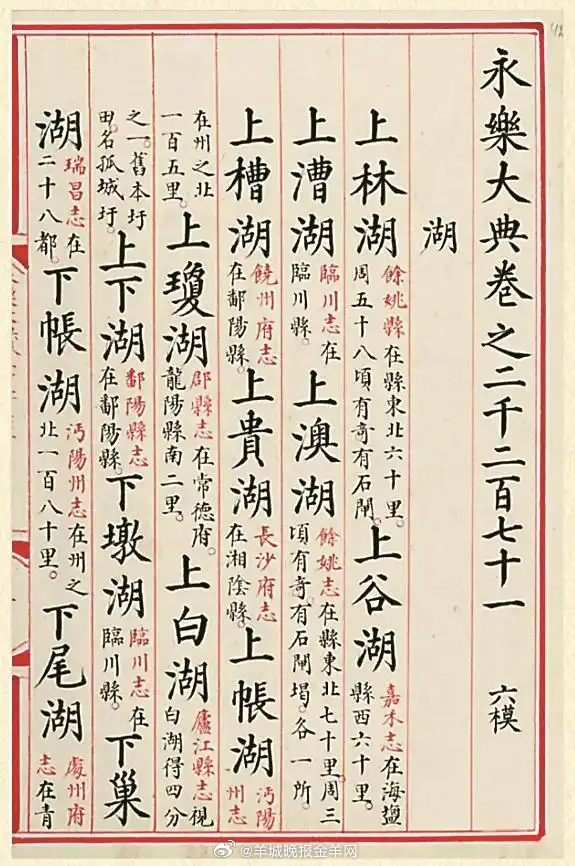 永樂大典卷之二千二百七十一 六模
湖
上林湖 餘姚縣在縣東北六十里。周五十八頃有奇有石閘。上谷湖 嘉禾志在海鹽縣西六十里。
上漕湖 臨川志在臨川縣。上澳湖 餘姚志在縣東北七十里周三頃有奇。有石閘堨。各一所。
上槽湖 饒州府志在鄱陽縣。上貴湖 長沙府志在湘陰縣。上帳湖 沔陽州志
在州之北一百五里。上瓊湖 郡縣志在常德府。龍陽縣南二里。上白湖 廬江縣志視白湖得四分
之一。舊本圩田名孤城圩。上下湖 鄱陽縣志在鄱陽縣。下墩湖 臨川志在臨川縣。下巢
湖 瑞昌志在二十八都。下帳湖 沔陽州志在州之北一百八十里。下尾湖 處州府志在青
@羊城晚报金羊网